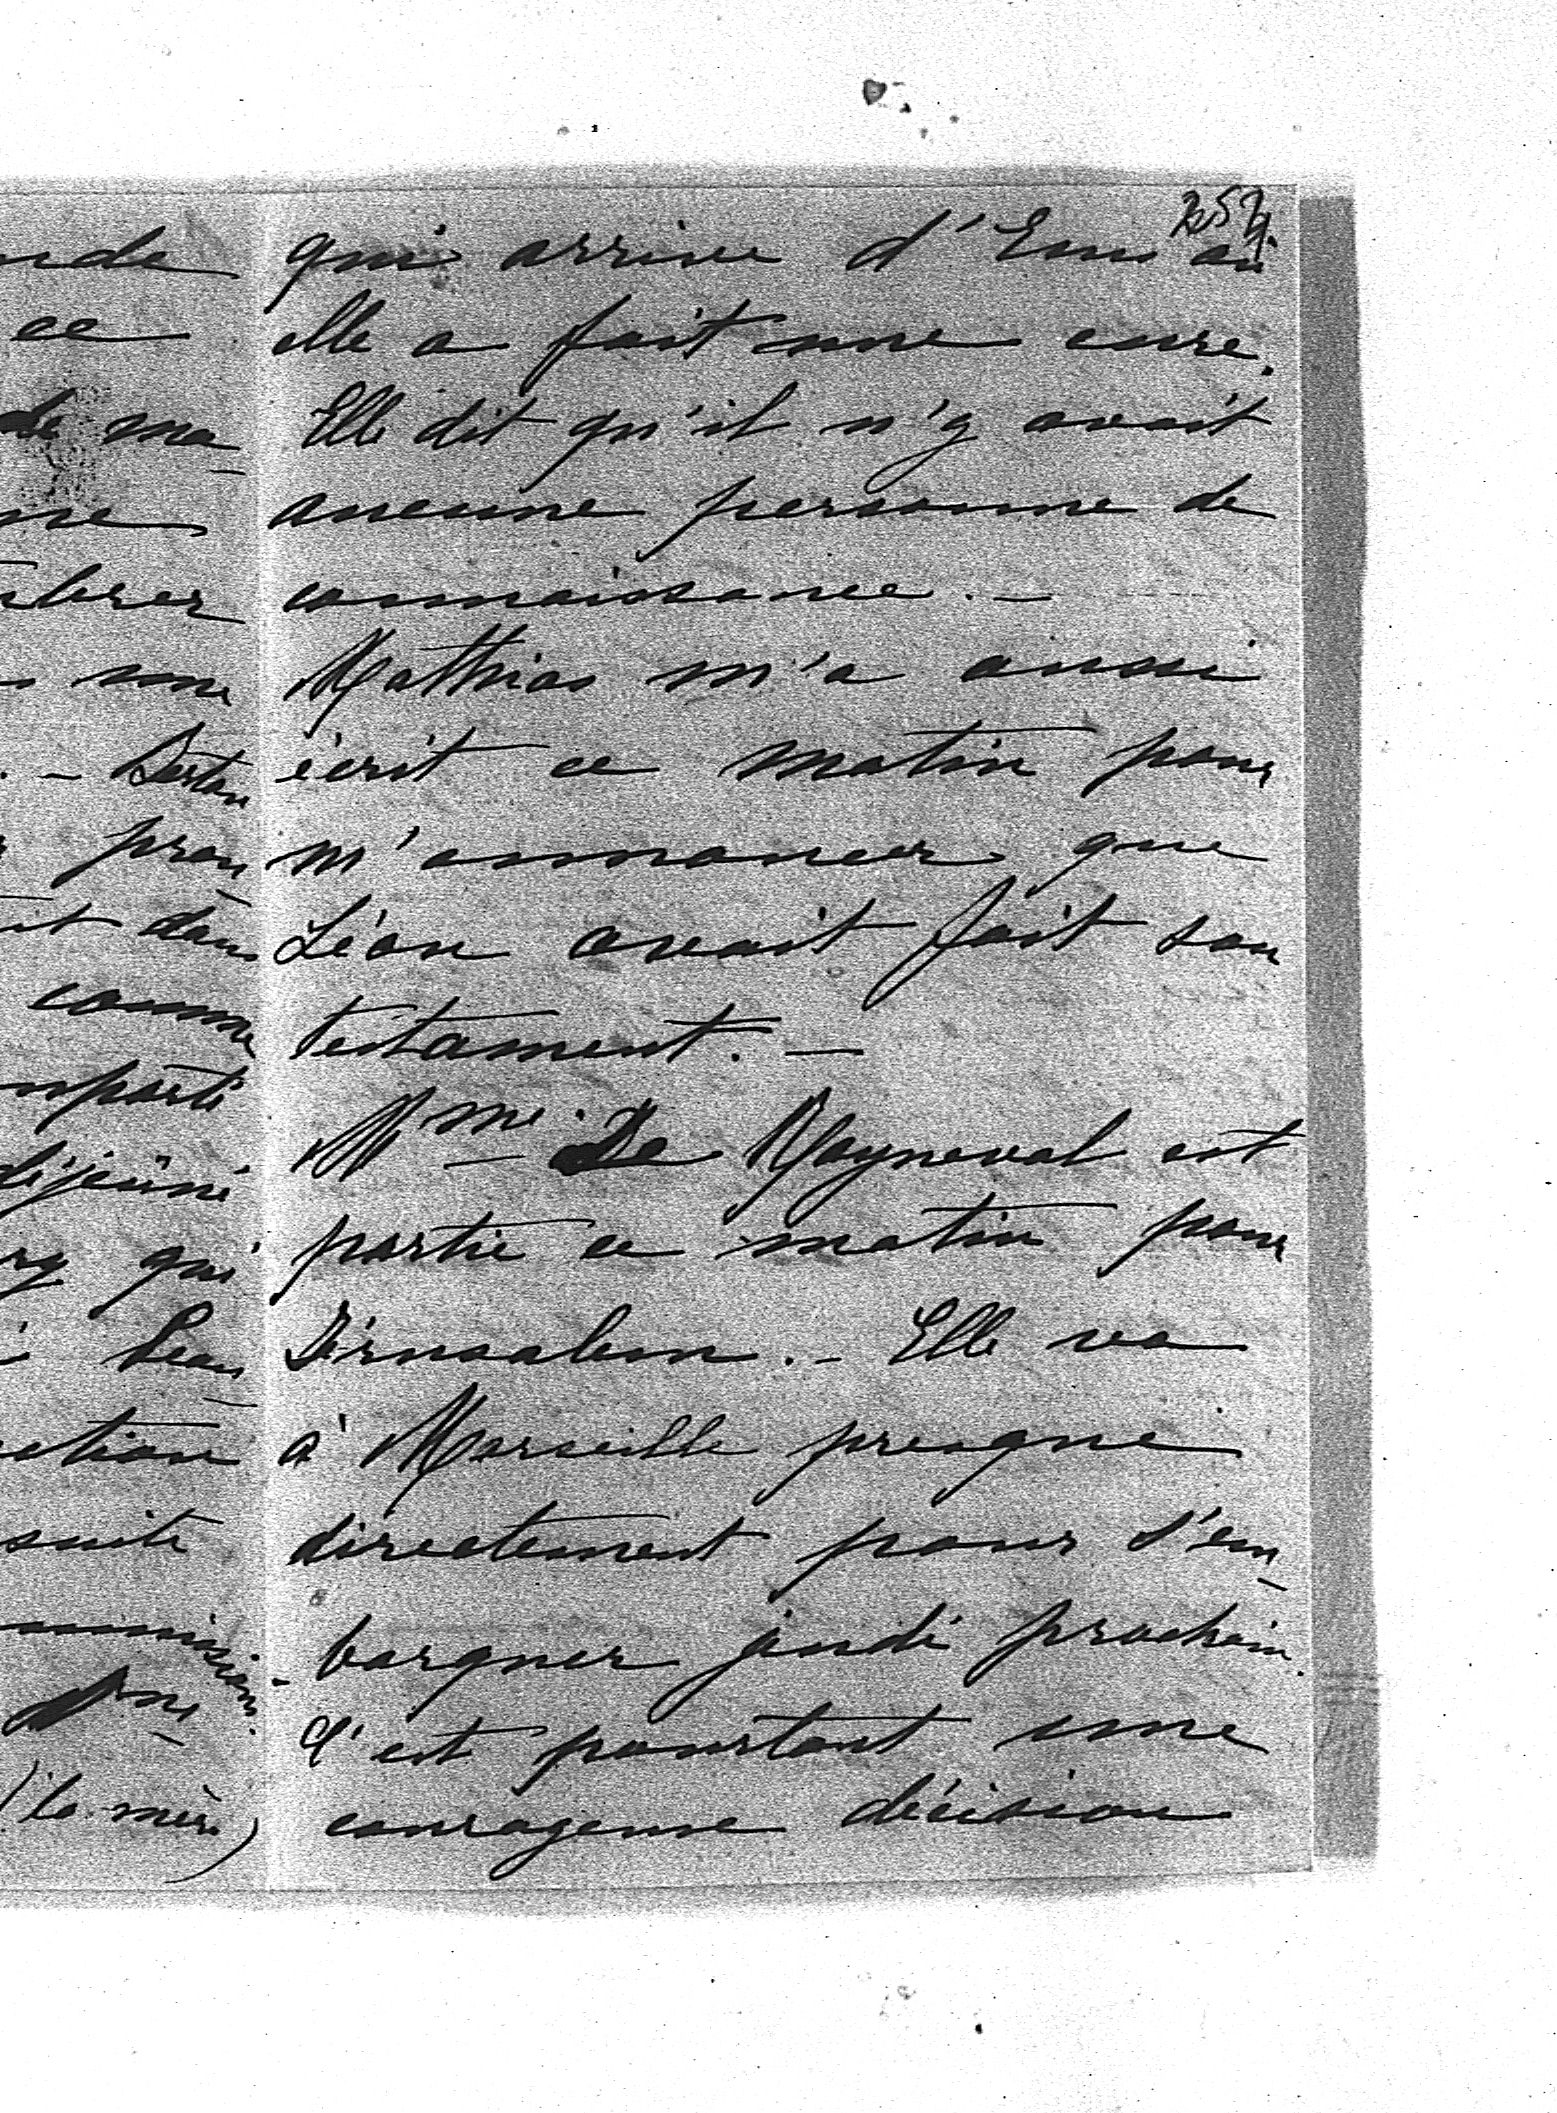 nde
ce
de ma-
me
une
. — 
dans
comme
déjeuné
qui
suite
(la mère)
254
qui arrive d'Ems où
elle a fait une cure.
Elle dit qu'il n'y avait
aucune personne de
connaissance. —
Mathias m'a aussi
écrit ce matin pour
m'annoncer que
Léon avait fait son
testament. —
Mme De Rayneval est
partie ce matin pour
Jérusalem. — Elle va
à Marseille presque
directement pour s'em-
barquer jeudi prochain.
C'est pourtant une
courageuse décision